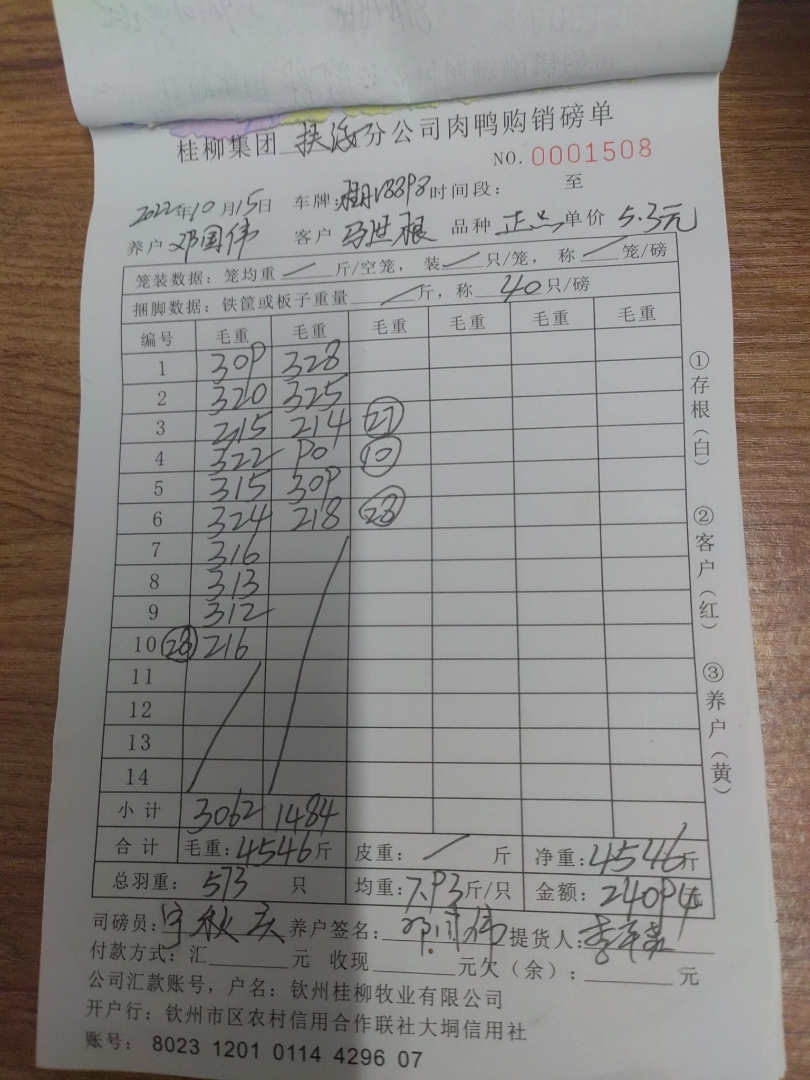 桂柳集团 扶 分公司肉鸭购销磅单
NO. 0001508
2022年10月15日 车牌: 时间段: 至
养户 邓国伟 客户 马世根 品种 正品 单价 5.3元
笼装数据: 笼均重 / 斤/空笼, 装 / 只/笼, 称 / 笼/磅
捆脚数据: 铁筐或板子重量 / 斤, 称 40 只/磅
编号 毛重 毛重 毛重 毛重 毛重 毛重
1 309 328
2 320 325
3 215 214 27
4 322 90 10
5 315 309
6 324 218 28
7 316
8 313
9 312
10 28 216
11
12
13
14
小计 3062 1484
合计 毛重: 4546斤 皮重: / 斤 净重: 4546斤
总羽重: 573 只 均重: 7.93斤/只 金额: 24094
司磅员: 养户签名: 邓国伟 提货人:
付款方式: 汇 元 收现 元欠(余): 元
公司汇款账号, 户名: 钦州桂柳牧业有限公司
开户行: 钦州市区农村信用合作联社大垌信用社
账号: 8023 1201 0114 4296 07
①存根(白)
②客户(红)
③养户(黄)